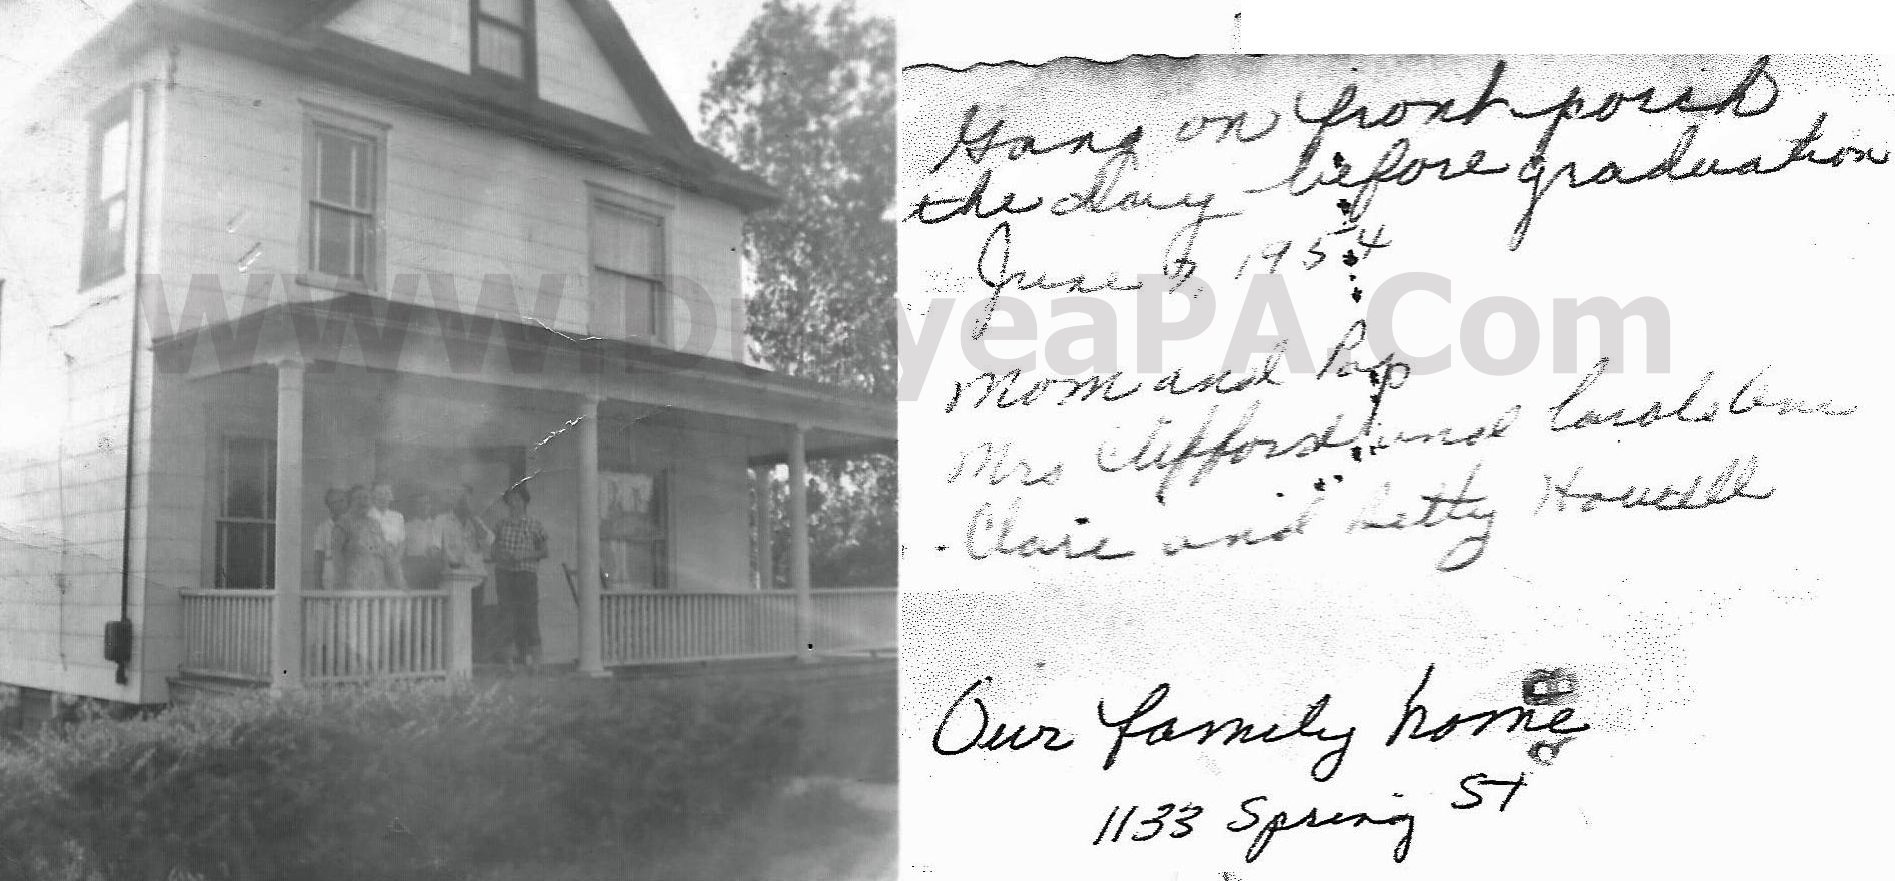 Gang on front porch
the day before graduation
June 7, 1954
Mom and Pap
Mrs Clifford and Carole Ann
Clare and Betty Howell
Our family home
1133 Spring St
www.DuryeaPA.Com